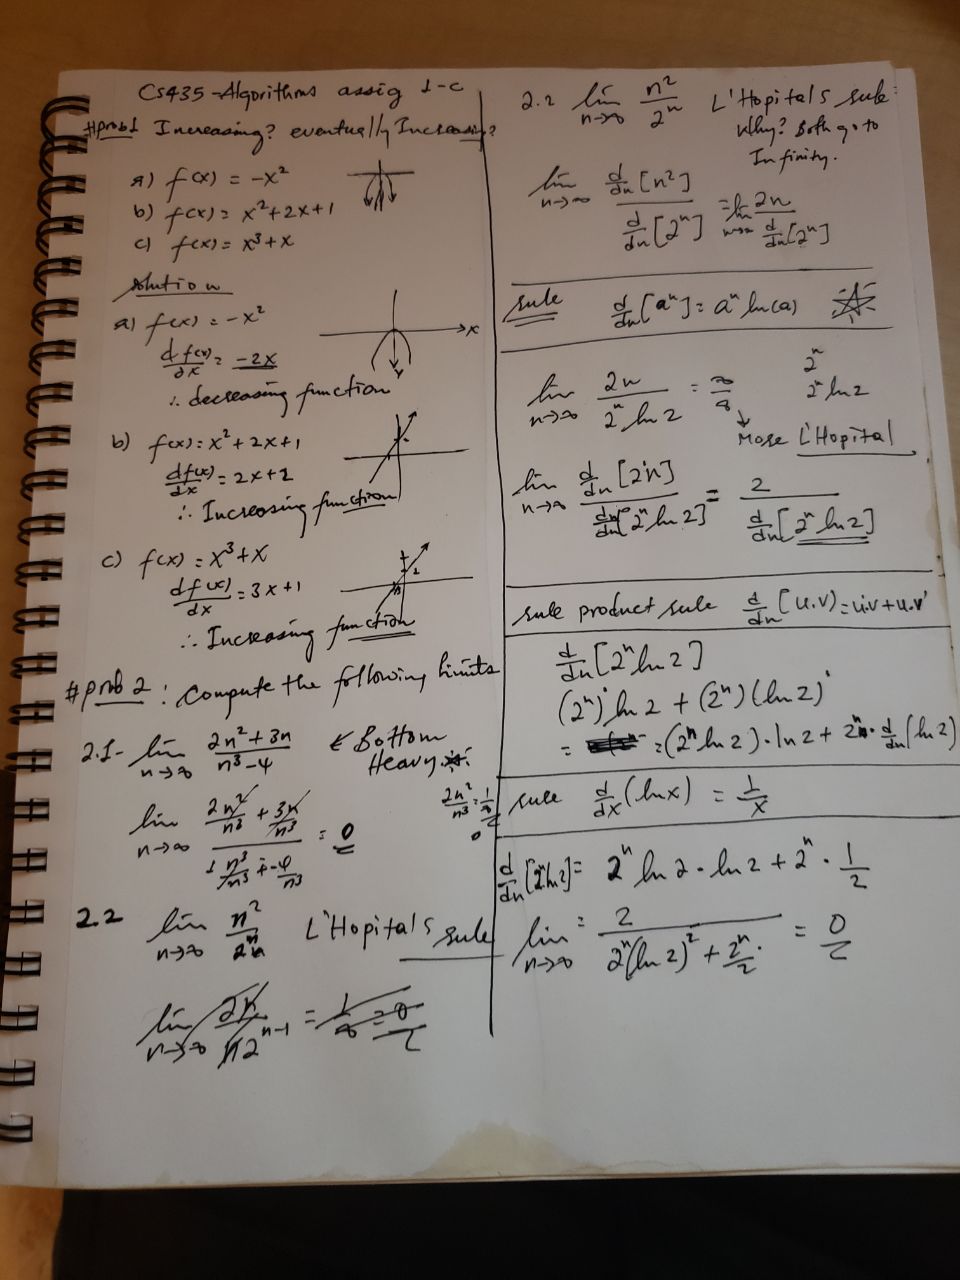 CS435 - Algorithms assig 1-c
#prob1 Increasing? eventually Increasing?
a) f(x) = -x²
b) f(x) = x²+2x+1
c) f(x) = x³+x
solution
a) f(x) = -x²
df(x)/dx = -2x
x
y
∴ decreasing function
b) f(x) = x²+2x+1
df(x)/dx = 2x+2
∴ Increasing function
c) f(x) = x³+x
df(x)/dx = 3x+1
∴ Increasing function
#prob 2 : Compute the following limits
2.1- lim n→∞ (2n²+3n)/(n³-4) ← Bottom
Heavy
lim n→∞ (2n²/n³ + 3n/n³)/(n³/n³ + -4/n³) = 0
2.2 lim n→∞ n²/2ⁿ L'Hopital's rule
lim n→∞ 2n/n2ⁿ⁻¹ = 1/∞ = 0
2.2 lim n→∞ n²/2ⁿ L'Hopital's rule:
Why? Both go to
Infinity.
lim n→∞ d/dn[n²] / d/dn[2ⁿ] = lim n→∞ 2n / d/dn[2ⁿ]
rule d/dn[aⁿ] = aⁿ ln(a)
2ⁿ
2ⁿ ln2
lim n→∞ 2n/(2ⁿ ln 2) = ∞/∞
More L'Hopital
lim n→∞ d/dn[2n] / d/dn[2ⁿ ln 2] = 2 / d/dn[2ⁿ ln 2]
rule product rule d/dn[u.v] = u'.v + u.v'
d/dn[2ⁿ ln 2]
(2ⁿ)' ln 2 + (2ⁿ)(ln 2)'
= (2ⁿ ln 2) · ln 2 + 2ⁿ · d/dn(ln 2)
rule d/dx(ln x) = 1/x
d/dn[2ⁿ ln 2] = 2ⁿ ln 2 · ln 2 + 2ⁿ · 1/2
lim n→∞ = 2/(2ⁿ(ln 2)² + 2ⁿ/2) = 0